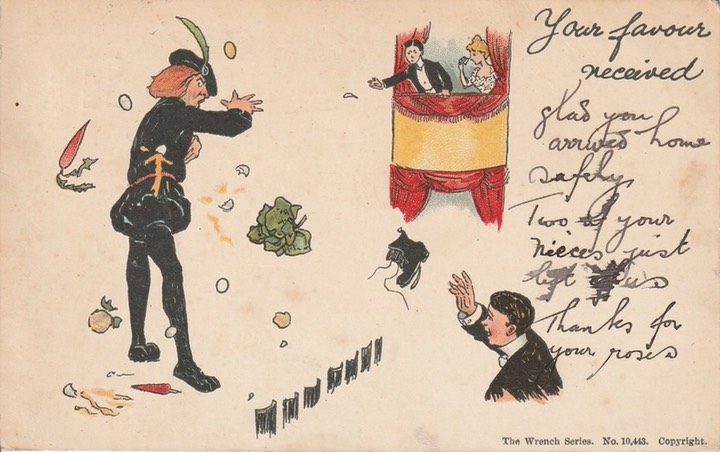 Your favour
received
glad you
arrived home
safely
Two of your
nieces just
left
Thanks for
your roses
The Wrench Series. No. 10,443. Copyright.